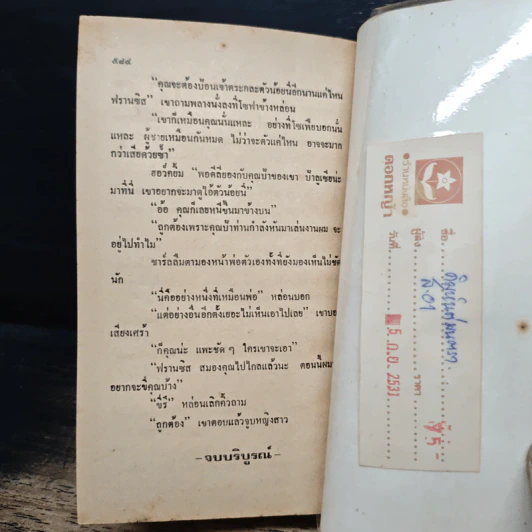 ๕๘๔
"คุณจะต้องป้อนเข้าตระกละตัวน้อยนี่อีกนานแค่ไหน
ฟรานซิส" เขาถามพลางนั่งลงที่โซฟาข้างหล่อน
"เขาก็เหมือนคุณนั่นแหละ อย่างที่ไซเพียบอกนั่น
แหละ ผู้ชายเหมือนกันหมด ไม่ว่าจะตัวแค่ไหน อาจจะมาก
กว่าเสียด้วยซ้ำ"
ฮอว์คยิ้ม "พอดีลี่ยองกับคุณป้าของเขา ป้าลูเซียน่ะ
มาที่นี่ เขาอยากจะมาดูไอ้ตัวน้อยนี่"
"อ้อ คุณก็เลยหนีขึ้นมาข้างบน"
"ถูกต้องเพราะคุณป้าท่านกำลังหันมาเล่นงานผม จะ
อยู่ไปทำไม"
ชาร์ลลืมตามองหน้าพ่อตัวเองทั้งที่ยังมองเห็นไม่ชัด
นัก
"นี่คืออย่างหนึ่งที่เหมือนพ่อ" หล่อนบอก
"แต่อย่างอื่นอีกตั้งเยอะไม่เห็นเอาไปเลย" เขาบอก
เสียงเศร้า
"ก็คุณน่ะ แพะชัดๆ ใครเขาจะเอา"
"ฟรานซิส สมองคุณไปไกลแล้วนะ ตอนนี้ผม
อยากจะขี่คุณบ้าง"
"ขี่รึ" หล่อนเลิกคิ้วถาม
"ถูกต้อง" เขาตอบแล้วจูบหญิงสาว
- จบบริบูรณ์ -
ร้านหนังสือ
ดอกหญ้า
ชื่อ
ผู้แต่ง
วันที่ 5 ก.ย. 2531
ราคา